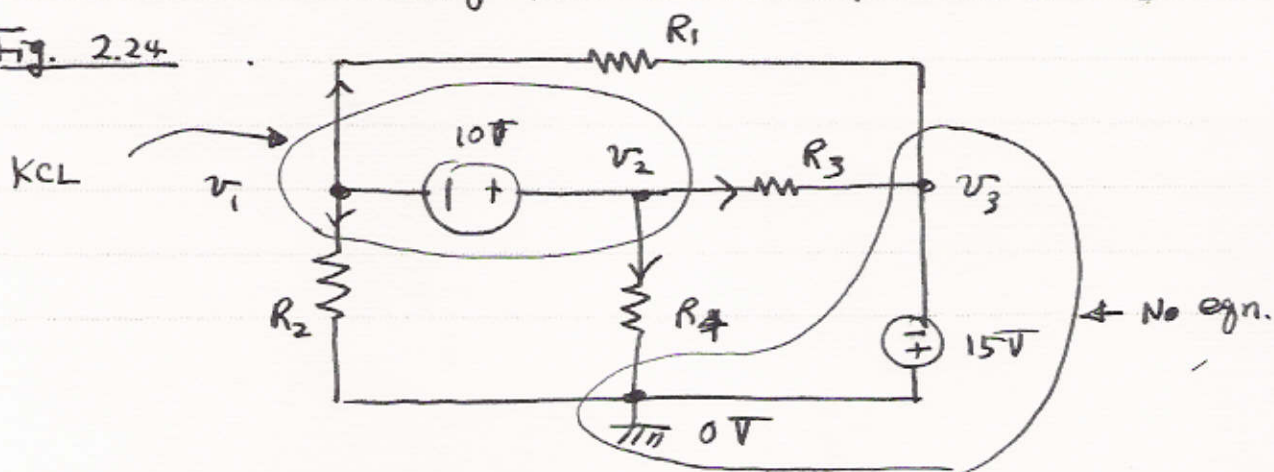 Fig. 2.24
R1
KCL
10V
v1
v2
R3
v3
R2
R4
− +
15V
← No eqn.
0V